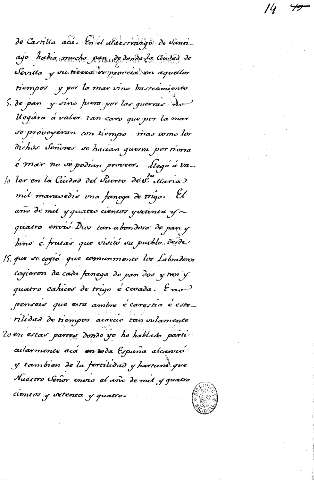 14
de Castilla acá. En el Maestrazgo de Santi-
ago habia mucho pan, de donde la Ciudad de
Sevilla y su tierra se proveia en aquellos
tiempos y por la mar vino bastecimiento
5. de pan y sino fuera por las guerras
llegára á valer tan caro que por la mar
se proveyeran con tiempo mas como los
dichos Señores se hacian guerra por tierra
é mar no se podian proveer. Llegó á va-
10 ler en la Ciudad del Puerto de Sta. Maria
mil maravedis una fanega de trigo. El
año de mil y quatro cientos y setenta y
quatro envió Dios tan abondoso de pan y
vino é frutas que visitó su pueblo, desde
15. que se cogió que comunmente los Labradores
cogieron de cada fanega de pan dos y tres y
quatro cahices de trigo é cevada. E no
penseis que esta ambre é carestia é este-
rilidad de tiempos acaeció tan solamente
20 en estas partes donde yo he hablado parti-
cularmente acá en toda España alcanzó
y tambien de la fertilidad y hartura que
Nuestro Señor envió el año de mil y quatro
cientos y setenta y quatro.